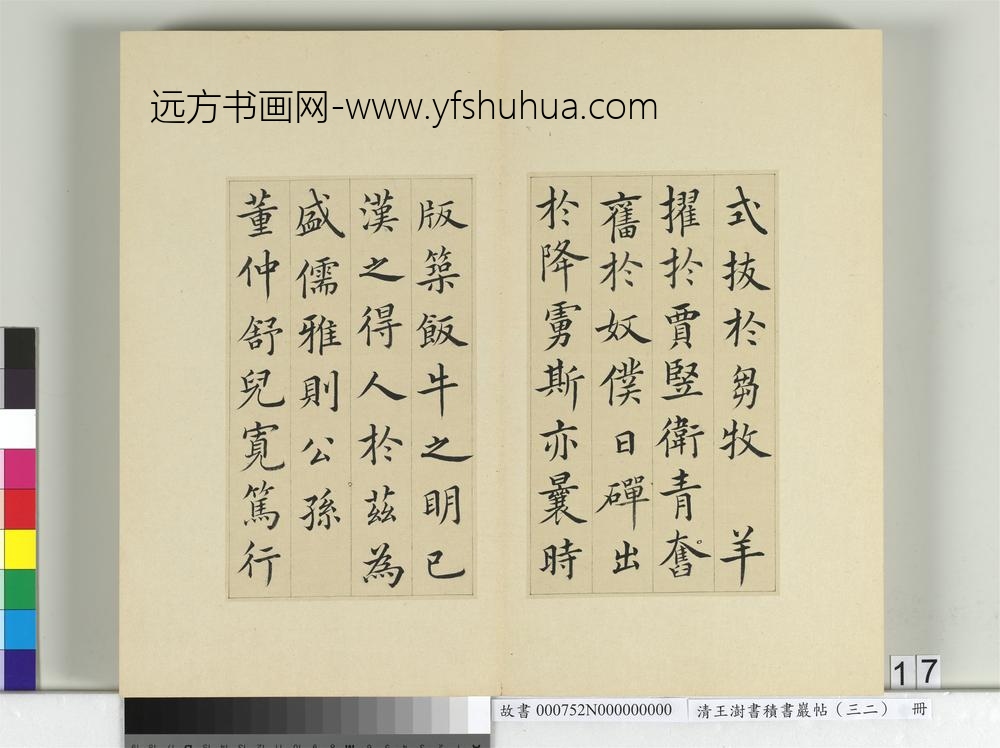 远方书画网-www.yfshuhua.com
式拔於芻牧 羊
擢於賈竪衛青奮
舊於奴僕日磾出
於降虜斯亦曩時
版築飯牛之明已
漢之得人於茲為
盛儒雅則公孫
董仲舒兒寬篤行
17
故書 000752N000000000 清王澍書積書巖帖（三二） 冊